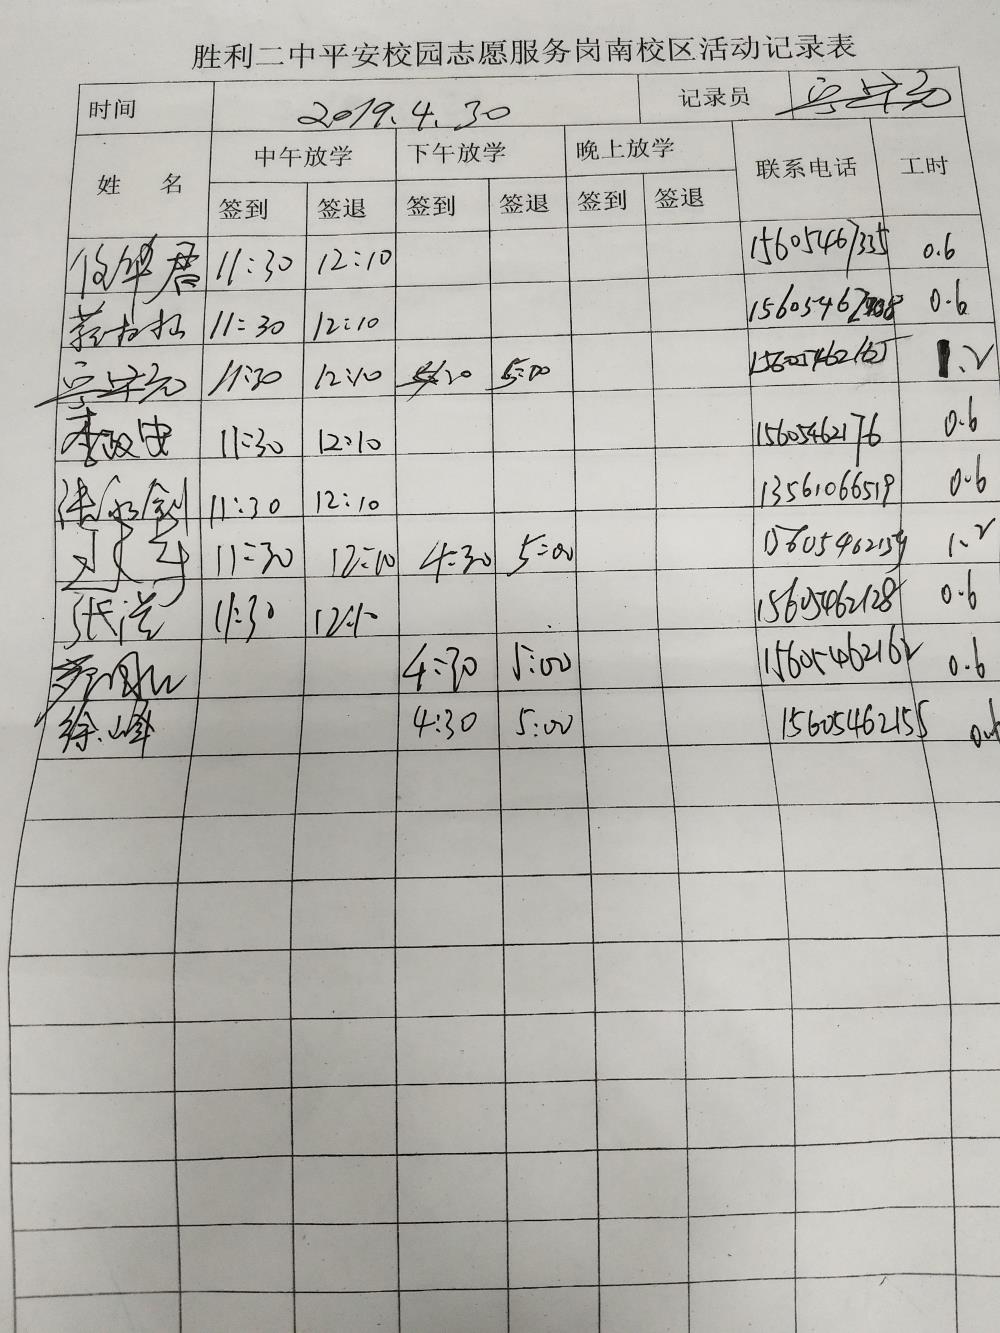 胜利二中平安校园志愿服务岗南校区活动记录表
时间 2019.4.30 记录员
姓 名 中午放学 下午放学 晚上放学 联系电话 工时
签到 签退 签到 签退 签到 签退
11:30 12:10 15605467335 0.6
11:30 12:10 0.6
11:30 12:10 5:00 15605462165 1.2
李政忠 11:30 12:10 15605462176 0.6
11:30 12:10 13561066519 0.6
11:30 12:10 4:30 5:00 15605462159 1.2
张洪 11:30 12:10 15605462128 0.6
4:30 5:00 15605462162 0.6
徐峰 4:30 5:00 15605462155 0.6